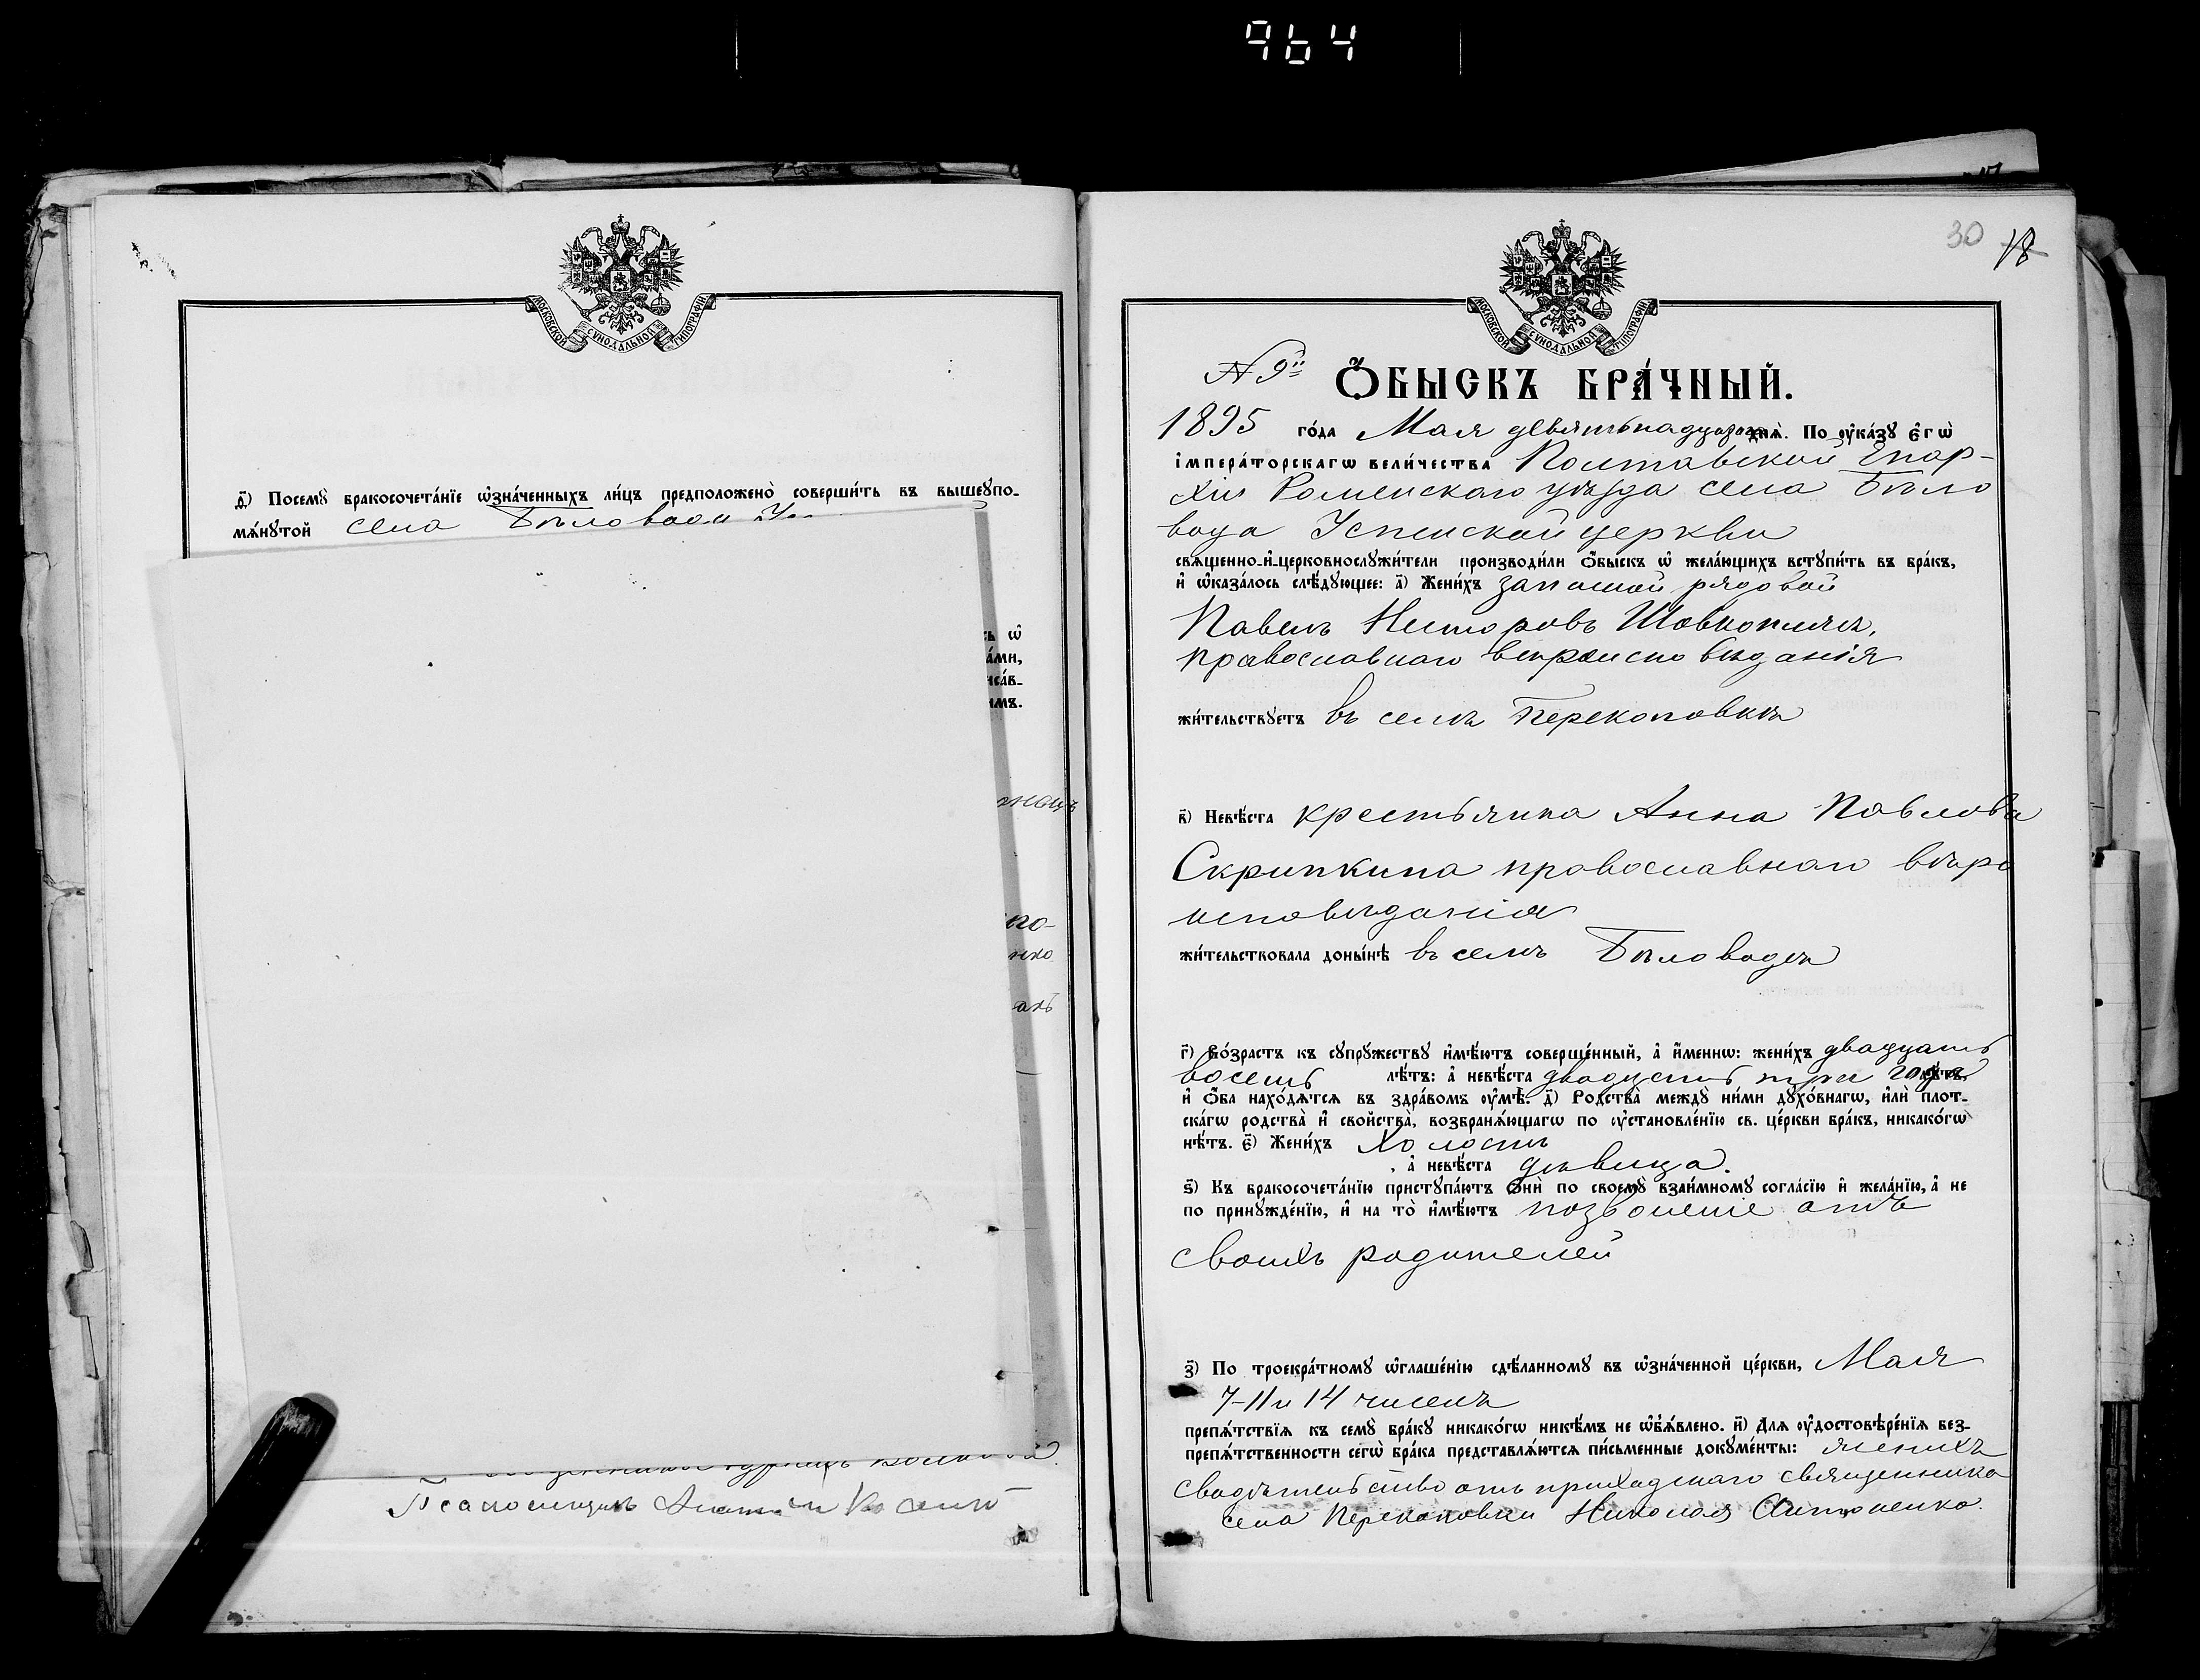 964
МОСКОВСКОЙ СУНОДАЛЬНОЙ ТИПОГРАФІИ
Посемꙋ̀ бракосочета́нїе ѡ҆зна́ченныхъ ли́цъ предположено̀ соверши́ть въ вышеꙋпо-
мѧ́нꙋтой села Бѣловодъ
ѡ҆
а́ми,
имъ.
го-
нко
Псаломщикъ
30
18
МОСКОВСКОЙ СУНОДАЛЬНОЙ ТИПОГРАФІИ
№ 9й Ѻ҆БЫСКЪ БРА́ЧНЫЙ.
1895 го́да Мая девятьнадцатаго днѧ̀. По ᲂу҆ка́зꙋ є҆гѡ̀
і҆мпера́торскагѡ вели́чества Полтавской Епар-
хіи Роменскаго уѣзда села Бѣло
вода Успенской церкви
свѧщенно-и҆-церковнослꙋжи́тели производи́ли ѻ҆́быскъ ѡ҆ жела́ющихъ встꙋпи́ть въ бра́къ,
и҆ ѡ҆каза́лось слѣ́дꙋющее: а҃) Жени́хъ запасной рядовой
Павелъ Несторовъ Шовкоплясъ,
православнаго вѣроисповѣданія
жи́тельствꙋетъ въ селѣ Перекоповкѣ
в҃) Невѣ́ста крестьянка Анна Павлова
Скрипкина православнаго вѣро
исповѣданія
жи́тельствовала доны́нѣ въ селѣ Бѣловодѣ
г҃) Во́зрастъ къ сꙋпрꙋ́жествꙋ и҆мѣ́ютъ соверше́нный, а҆ и҆́меннѡ: жени́хъ двадцать
восемь лѣ́тъ: а҆ невѣ́ста двадцать три года лѣ́тъ,
и҆ ѻ҆́ба нахо́дѧтсѧ въ здра́вомъ ᲂу҆мѣ̀. д҃) Родства̀ междꙋ̀ ни́ми дꙋхо́внагѡ, и҆лѝ плот-
ска́гѡ родства̀ и҆ свойства̀, возбранѧ́ющагѡ по ᲂу҆становле́нїю св. це́ркви бра́къ, никако́гѡ
нѣ́тъ. є҃) Жени́хъ холостъ
, а҆ невѣ́ста дѣвица.
ѕ҃) Къ бракосочета́нїю пристꙋпа́ютъ ѻ҆нѝ по своемꙋ̀ взаи́мномꙋ согла́сїю и҆ жела́нїю, а҆ не
по принꙋжде́нїю, и҆ на то̀ и҆мѣ́ютъ позволеніе отъ
своихъ родителей
з҃) По троекра́тномꙋ ѡ҆глаше́нїю сдѣ́ланномꙋ въ ѡ҆зна́ченной це́ркви, Мая
7-11 и 14 числъ
препѧ́тствїѧ къ семꙋ̀ бра́кꙋ никако́гѡ никѣ́мъ не ѡ҆б̾ѧ́влено. и҃) Длѧ ᲂу҆достовѣре́нїѧ без-
препѧ́тственности сегѡ̀ бра́ка представлѧ́ютсѧ пи́сьменные докꙋме́нты: жениха
свидѣтельство отъ приходскаго священника
села Перекоповки Николая Антоненко.